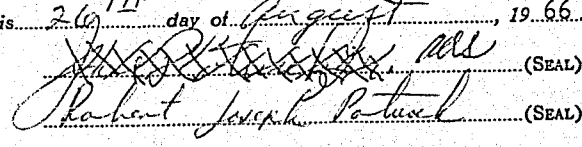 is 26TH day of August, 1966
(SEAL)
Robert Joseph (SEAL)